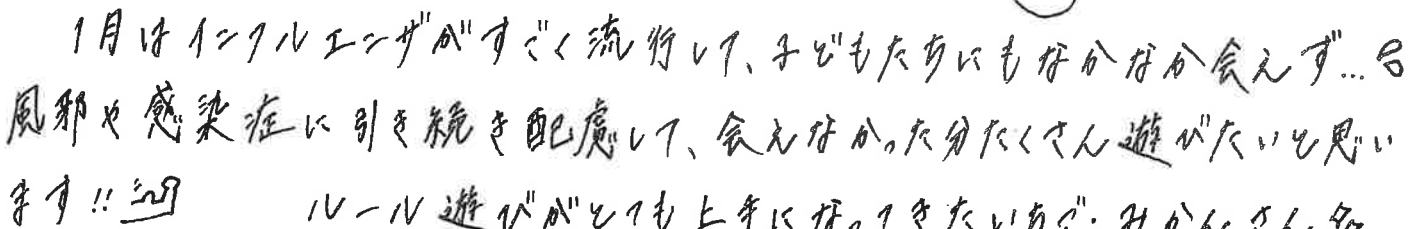 1月はインフルエンザがすごく流行して、子どもたちにもなかなか会えず…
風邪や感染症に引き続き配慮して、会えなかった分たくさん遊びたいと思い
ます!!
ルール遊びがとても上手になってきたいちご・みかんさん